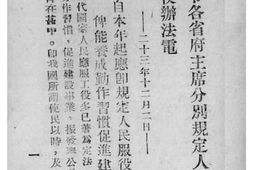 各省府主席分別規定人
役辦法電
——二十三年十二月二日——
自本年起應即規定人民服役
俾能養成勤作習慣促進建
代國家人民應服工役多已著為定法
作習慣，促進建設事業，振發公
在。卽我國所謂使民以時及
一